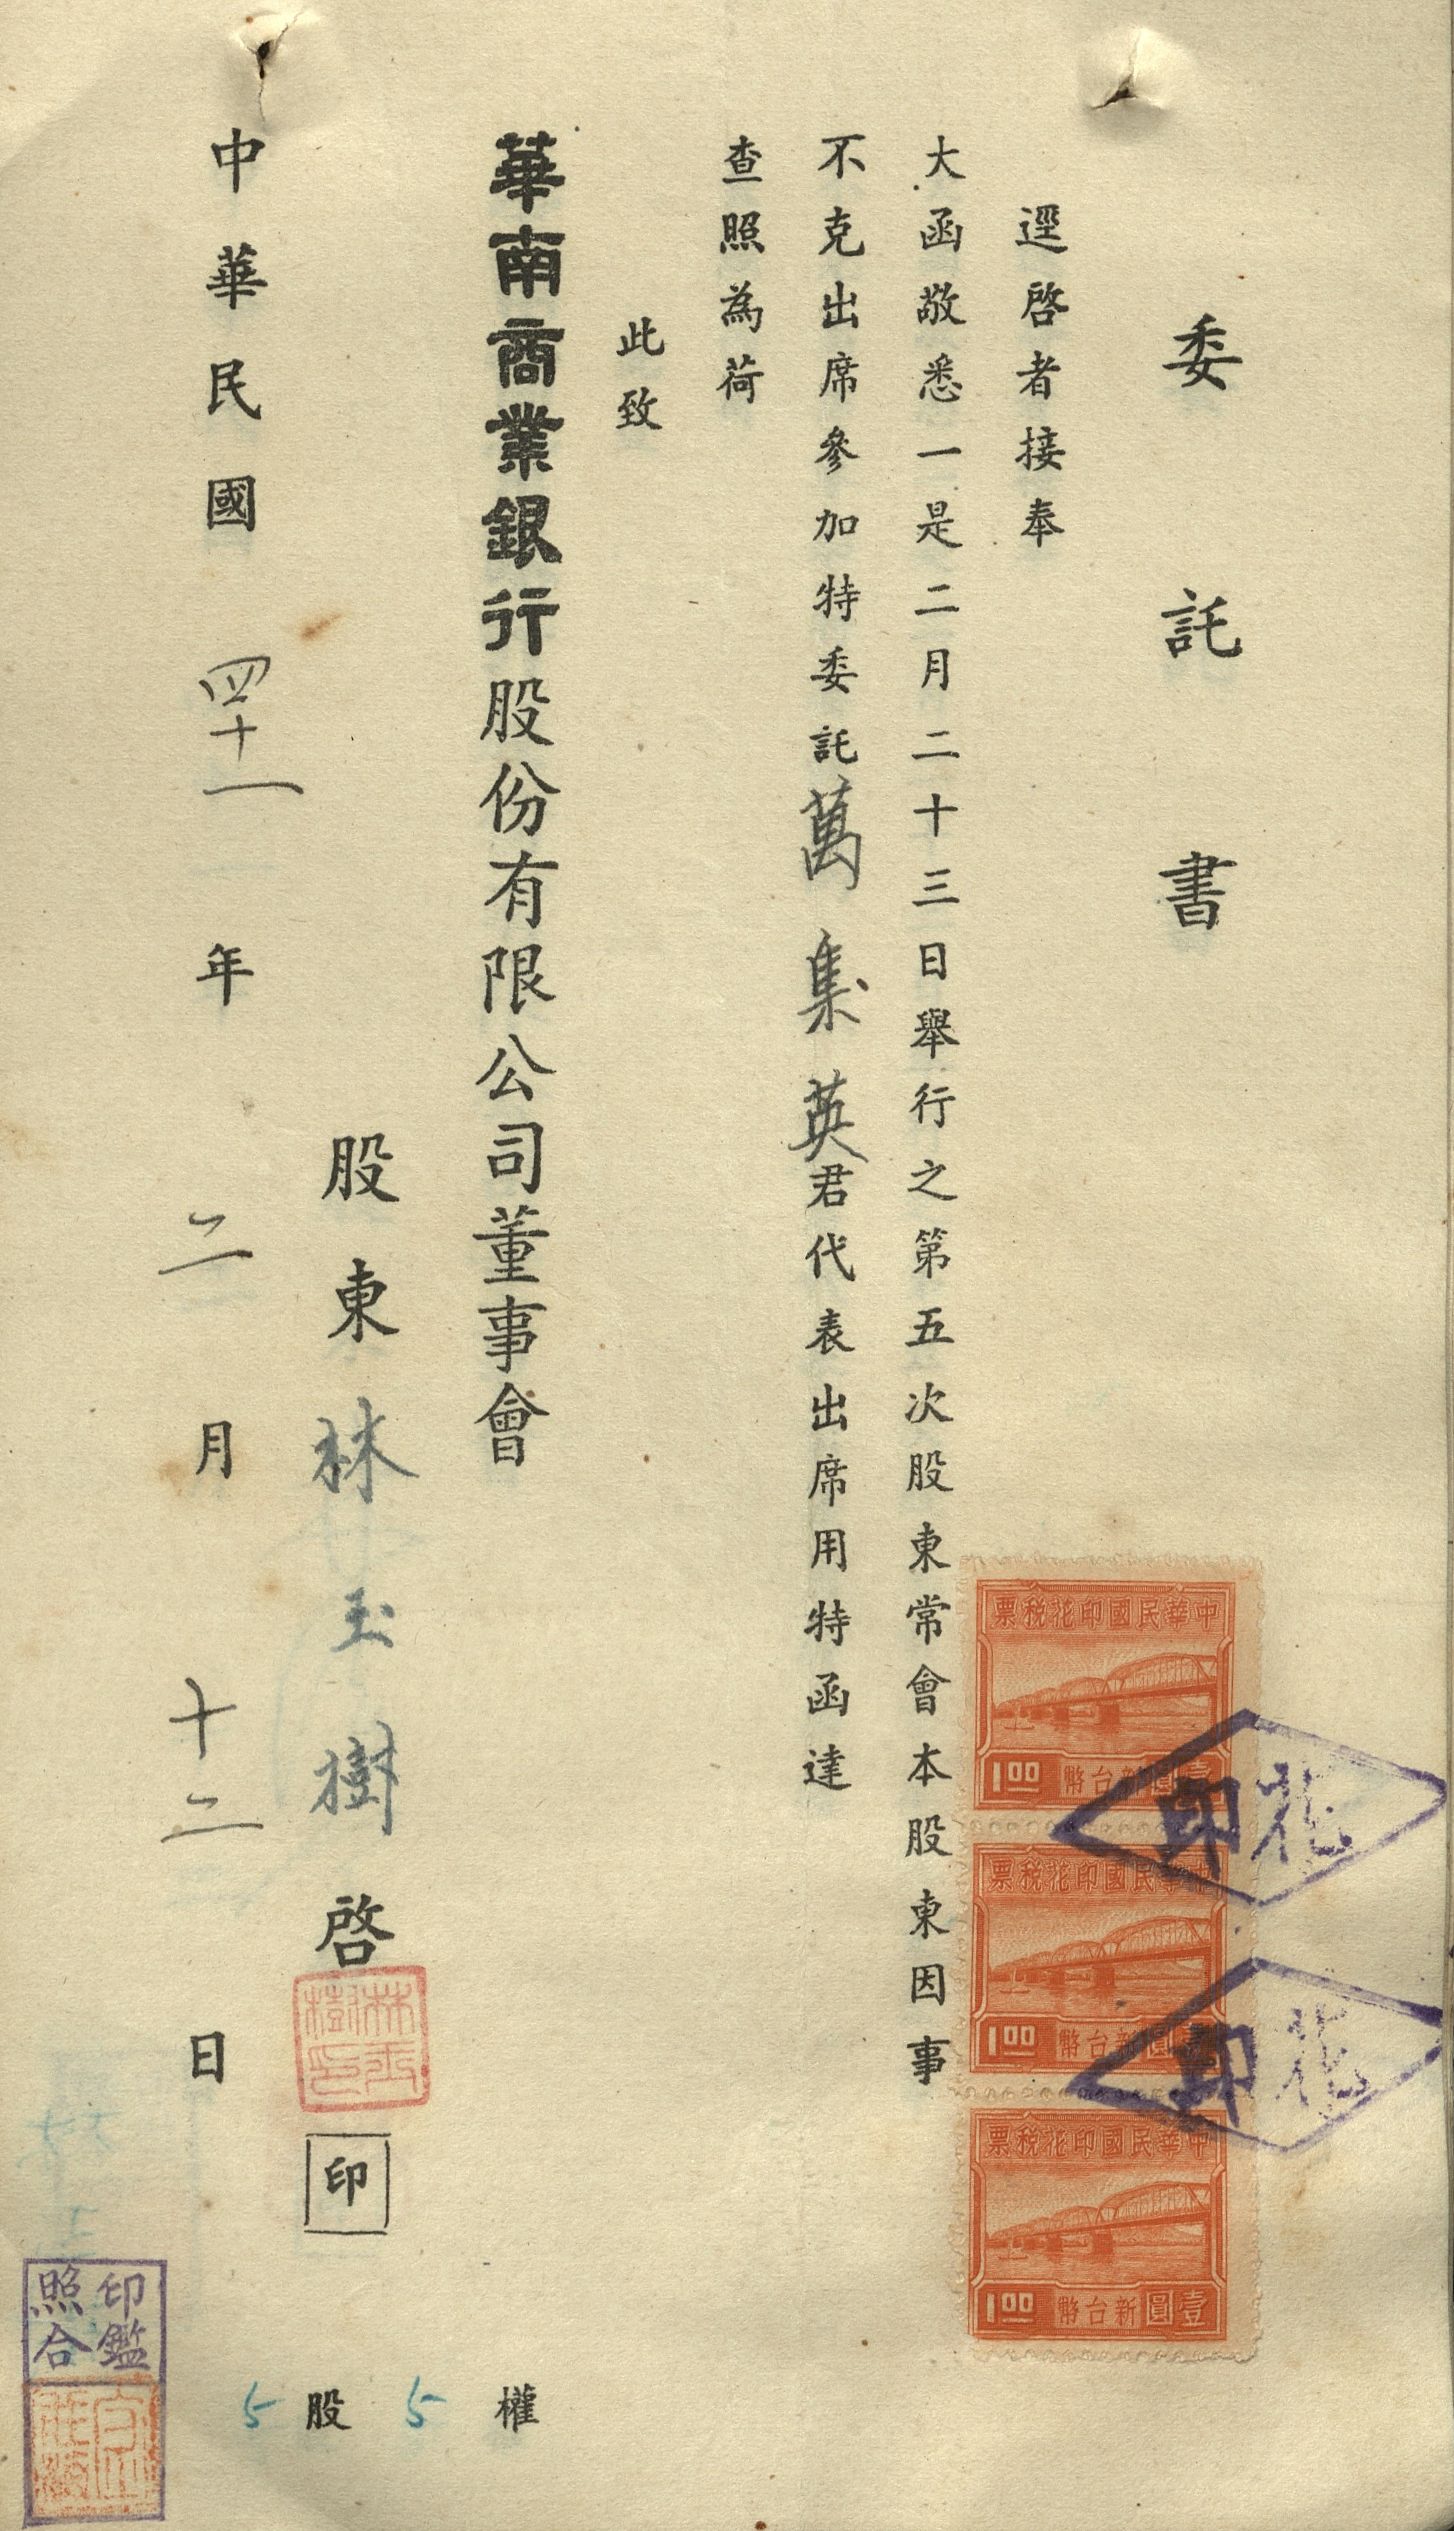 委託書
逕啓者接奉
大函敬悉一是二月二十三日舉行之第五次股東常會本股東因事
不克出席參加特委託萬集英君代表出席用特函達
查照為荷
此致
華南商業銀行股份有限公司董事會
股東林玉樹啓
林玉樹印
印
中華民國四十一年二月十二日
5股5權
印鑑照合
中華民國印花稅票
1.00 新台幣壹圓
中華民國印花稅票
1.00 新台幣壹圓
中華民國印花稅票
1.00 新台幣壹圓
印花
印花